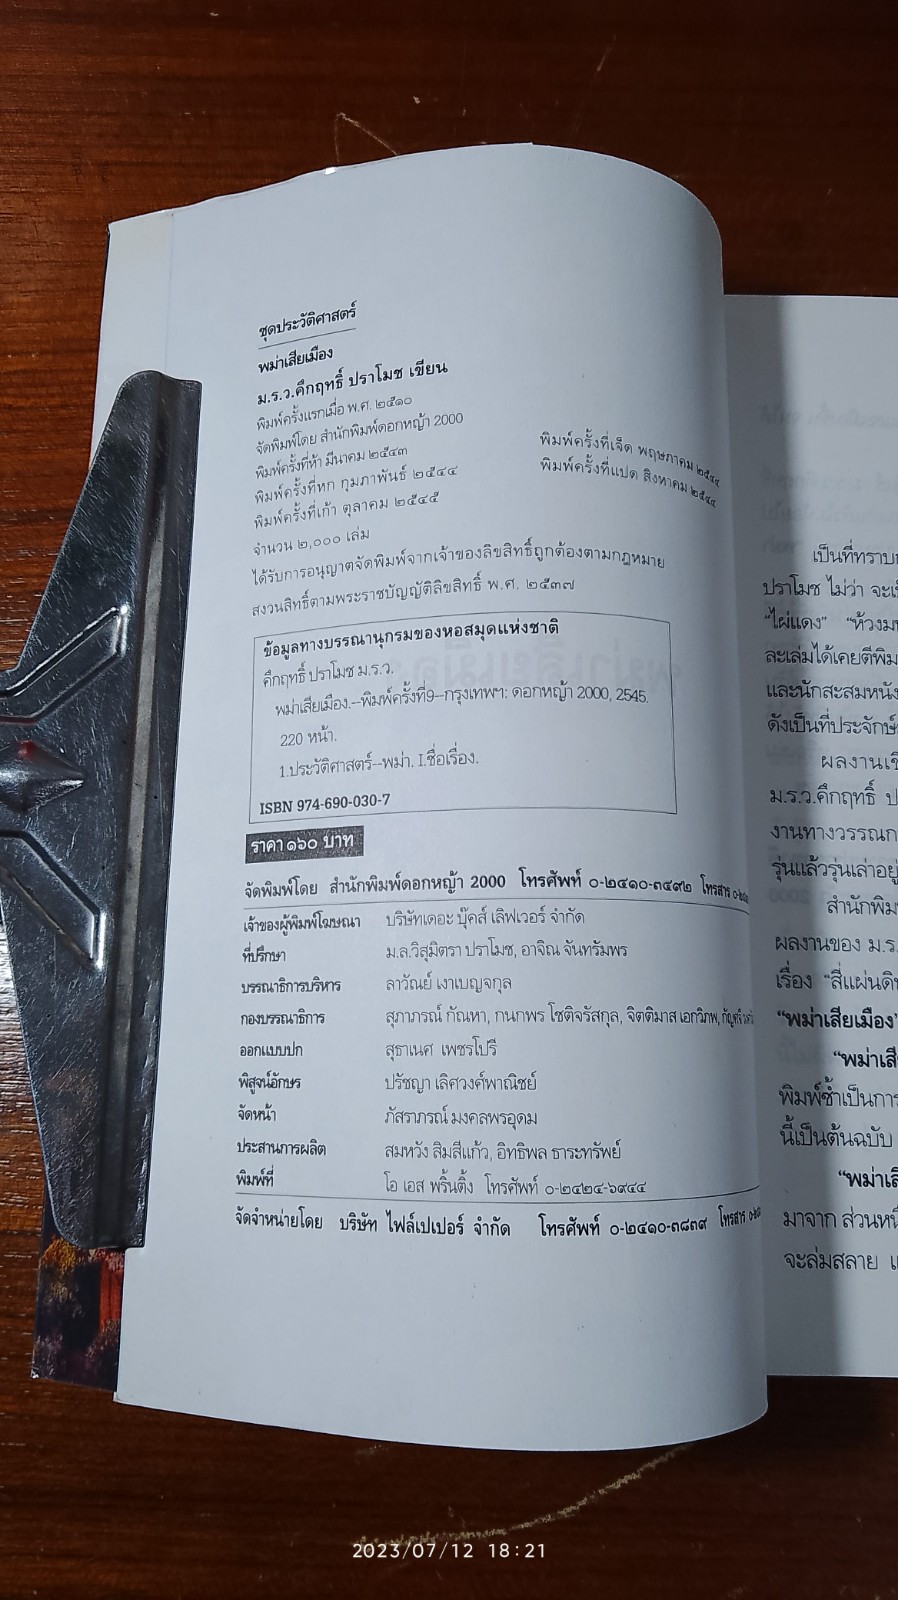 ชุดประวัติศาสตร์
พม่าเสียเมือง
ม.ร.ว.คึกฤทธิ์ ปราโมช เขียน
พิมพ์ครั้งแรกเมื่อ พ.ศ. ๒๕๑๐
จัดพิมพ์โดย สำนักพิมพ์ดอกหญ้า 2000
พิมพ์ครั้งที่ห้า มีนาคม ๒๕๔๓
พิมพ์ครั้งที่หก กุมภาพันธ์ ๒๕๔๔
พิมพ์ครั้งที่เจ็ด พฤษภาคม ๒๕๔๔
พิมพ์ครั้งที่แปด สิงหาคม ๒๕๔๔
พิมพ์ครั้งที่เก้า ตุลาคม ๒๕๔๕
จำนวน ๒,๐๐๐ เล่ม
ได้รับการอนุญาตจัดพิมพ์จากเจ้าของลิขสิทธิ์ถูกต้องตามกฎหมาย
สงวนสิทธิ์ตามพระราชบัญญัติลิขสิทธิ์ พ.ศ. ๒๕๓๗
ข้อมูลทางบรรณานุกรมของหอสมุดแห่งชาติ
คึกฤทธิ์ ปราโมช ม.ร.ว.
พม่าเสียเมือง.--พิมพ์ครั้งที่9--กรุงเทพฯ: ดอกหญ้า 2000, 2545.
220 หน้า.
1.ประวัติศาสตร์--พม่า. I.ชื่อเรื่อง.
ISBN 974-690-030-7
ราคา ๑๖๐ บาท
จัดพิมพ์โดย สำนักพิมพ์ดอกหญ้า 2000 โทรศัพท์ ๐-๒๔๑๐-๓๔๙๒ โทรสาร
เจ้าของผู้พิมพ์โฆษณา บริษัทเดอะ บุ๊คส์ เลิฟเวอร์ จำกัด
ที่ปรึกษา ม.ล.วิสุมิตรา ปราโมช, อาจิณ จันทรัมพร
บรรณาธิการบริหาร ลาวัณย์ เงาเบญจกุล
กองบรรณาธิการ สุภาภรณ์ กัณหา, กนกพร โชติจรัสกุล, จิตติมาส เอกวิภพ,
ออกแบบปก สุธาเนศ เพชรโปรี
พิสูจน์อักษร ปรัชญา เลิศวงศ์พาณิชย์
จัดหน้า ภัสราภรณ์ มงคลพรอุดม
ประสานการผลิต สมหวัง สิมสีแก้ว, อิทธิพล ธาระทรัพย์
พิมพ์ที่ โอ เอส พริ้นติ้ง โทรศัพท์ ๐-๒๔๒๔-๖๙๔๔
จัดจำหน่ายโดย บริษัท ไฟล์เปเปอร์ จำกัด โทรศัพท์ ๐-๒๔๑๐-๓๘๓๙ โทรสาร
เป็นที่ทราบ
ปราโมช ไม่ว่า จะ
"ไผ่แดง" "ห้วง
ละเล่มได้เคยตีพิม
และนักสะสมหนัง
ดังเป็นที่ประจักษ์
ผลงานเ
ม.ร.ว.คึกฤทธิ์ ป
งานทางวรรณก
รุ่นแล้วรุ่นเล่าอยู่
สำนักพิม
ผลงานของ ม.ร.
เรื่อง "สี่แผ่นดิน
"พม่าเสียเมือง"
"พม่าเสี
พิมพ์ซ้ำเป็นการ
นี้เป็นต้นฉบับ
"พม่าเสี
มาจาก ส่วนหนึ
จะล่มสลาย แ
2023/07/12 18:21